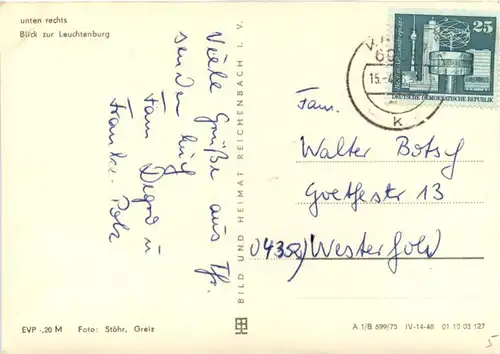 unten rechts
Blick zur Leuchtenburg
Viele Grüße aus Thr.
senden Euch
Fam
u
25
15.-4
k
DEUTSCHE DEMOKRATISCHE REPUBLIK
BILD UND HEIMAT REICHENBACH I. V.
Fam.
Walter Botsch
Goethestr 13
Westerhold
EVP -,20 M Foto: Stöhr, Greiz
A 1/B 699/75 IV-14-48 01 10 03 127
5